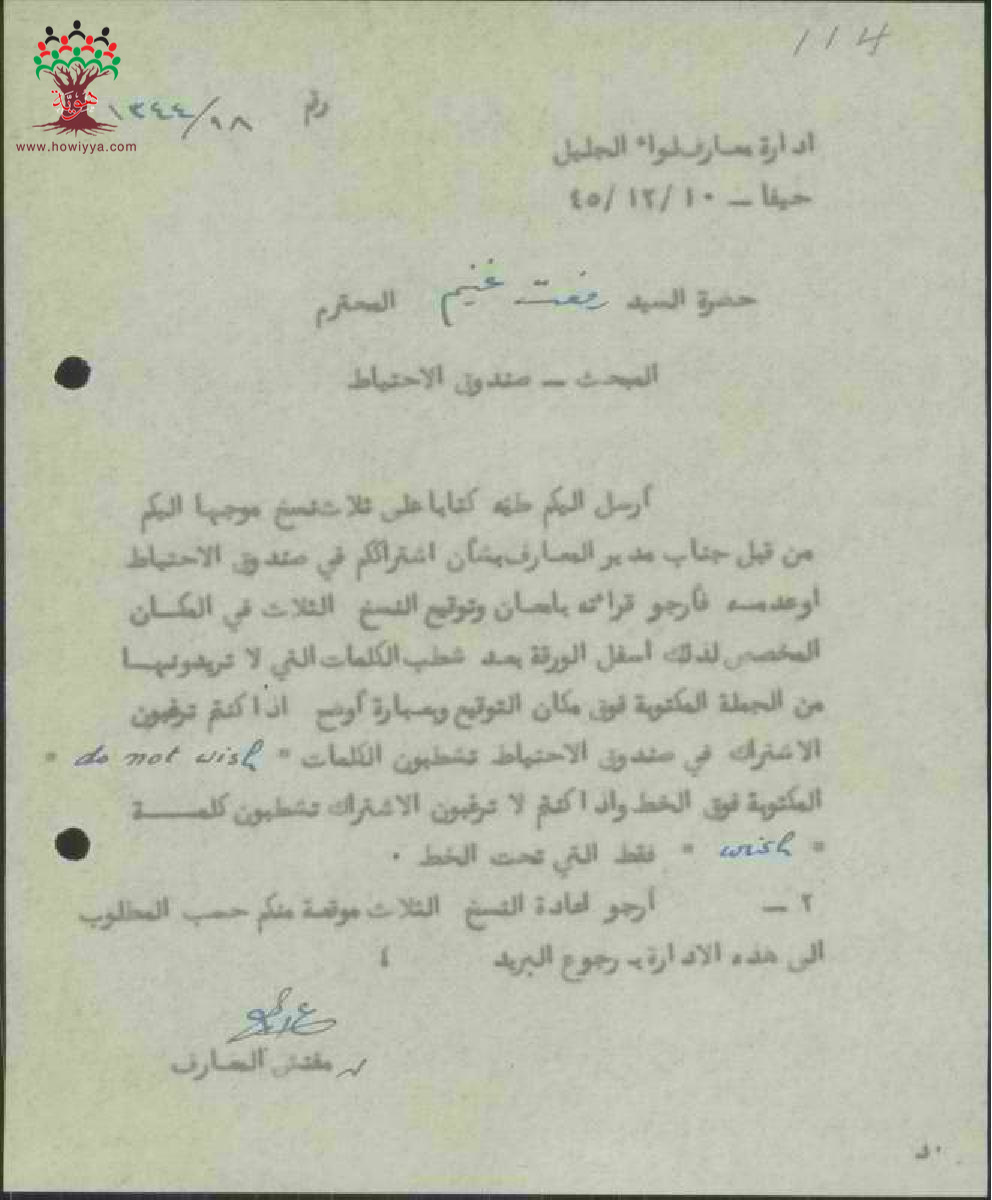 114
هويّة
www.howiyya.com
رقم ١٣٤٤/٩٨
ادارة معارف لواء الجليل
حيفا — ١٠ /١٢ /٤٥
حضرة السيد رفعت غنيم المحترم
المبحث — صندوق الاحتياط
أرسل اليكم طيه كتابا على ثلاث نسخ موجها اليكم
من قبل جناب مدير المعارف بشأن اشتراككم في صندوق الاحتياط
او عدمه فأرجو قرائته بامعان وتوقيع النسخ الثلاث في المكان
المخصص لذلك اسفل الورقة بعد شطب الكلمات التي لا تريدونها
من الجملة المكتوبة فوق مكان التوقيع وبعبارة أوضح اذا كنتم ترغبون
الاشتراك في صندوق الاحتياط تشطبون الكلمات " do not wish "
المكتوبة فوق الخط واذا كنتم لا ترغبون الاشتراك تشطبون كلمة
" wish " فقط التي تحت الخط .
٢ — أرجو اعادة النسخ الثلاث موقعة منكم حسب المطلوب
الى هذه الادارة بـ رجوع البريد ٤
مفتش المعارف